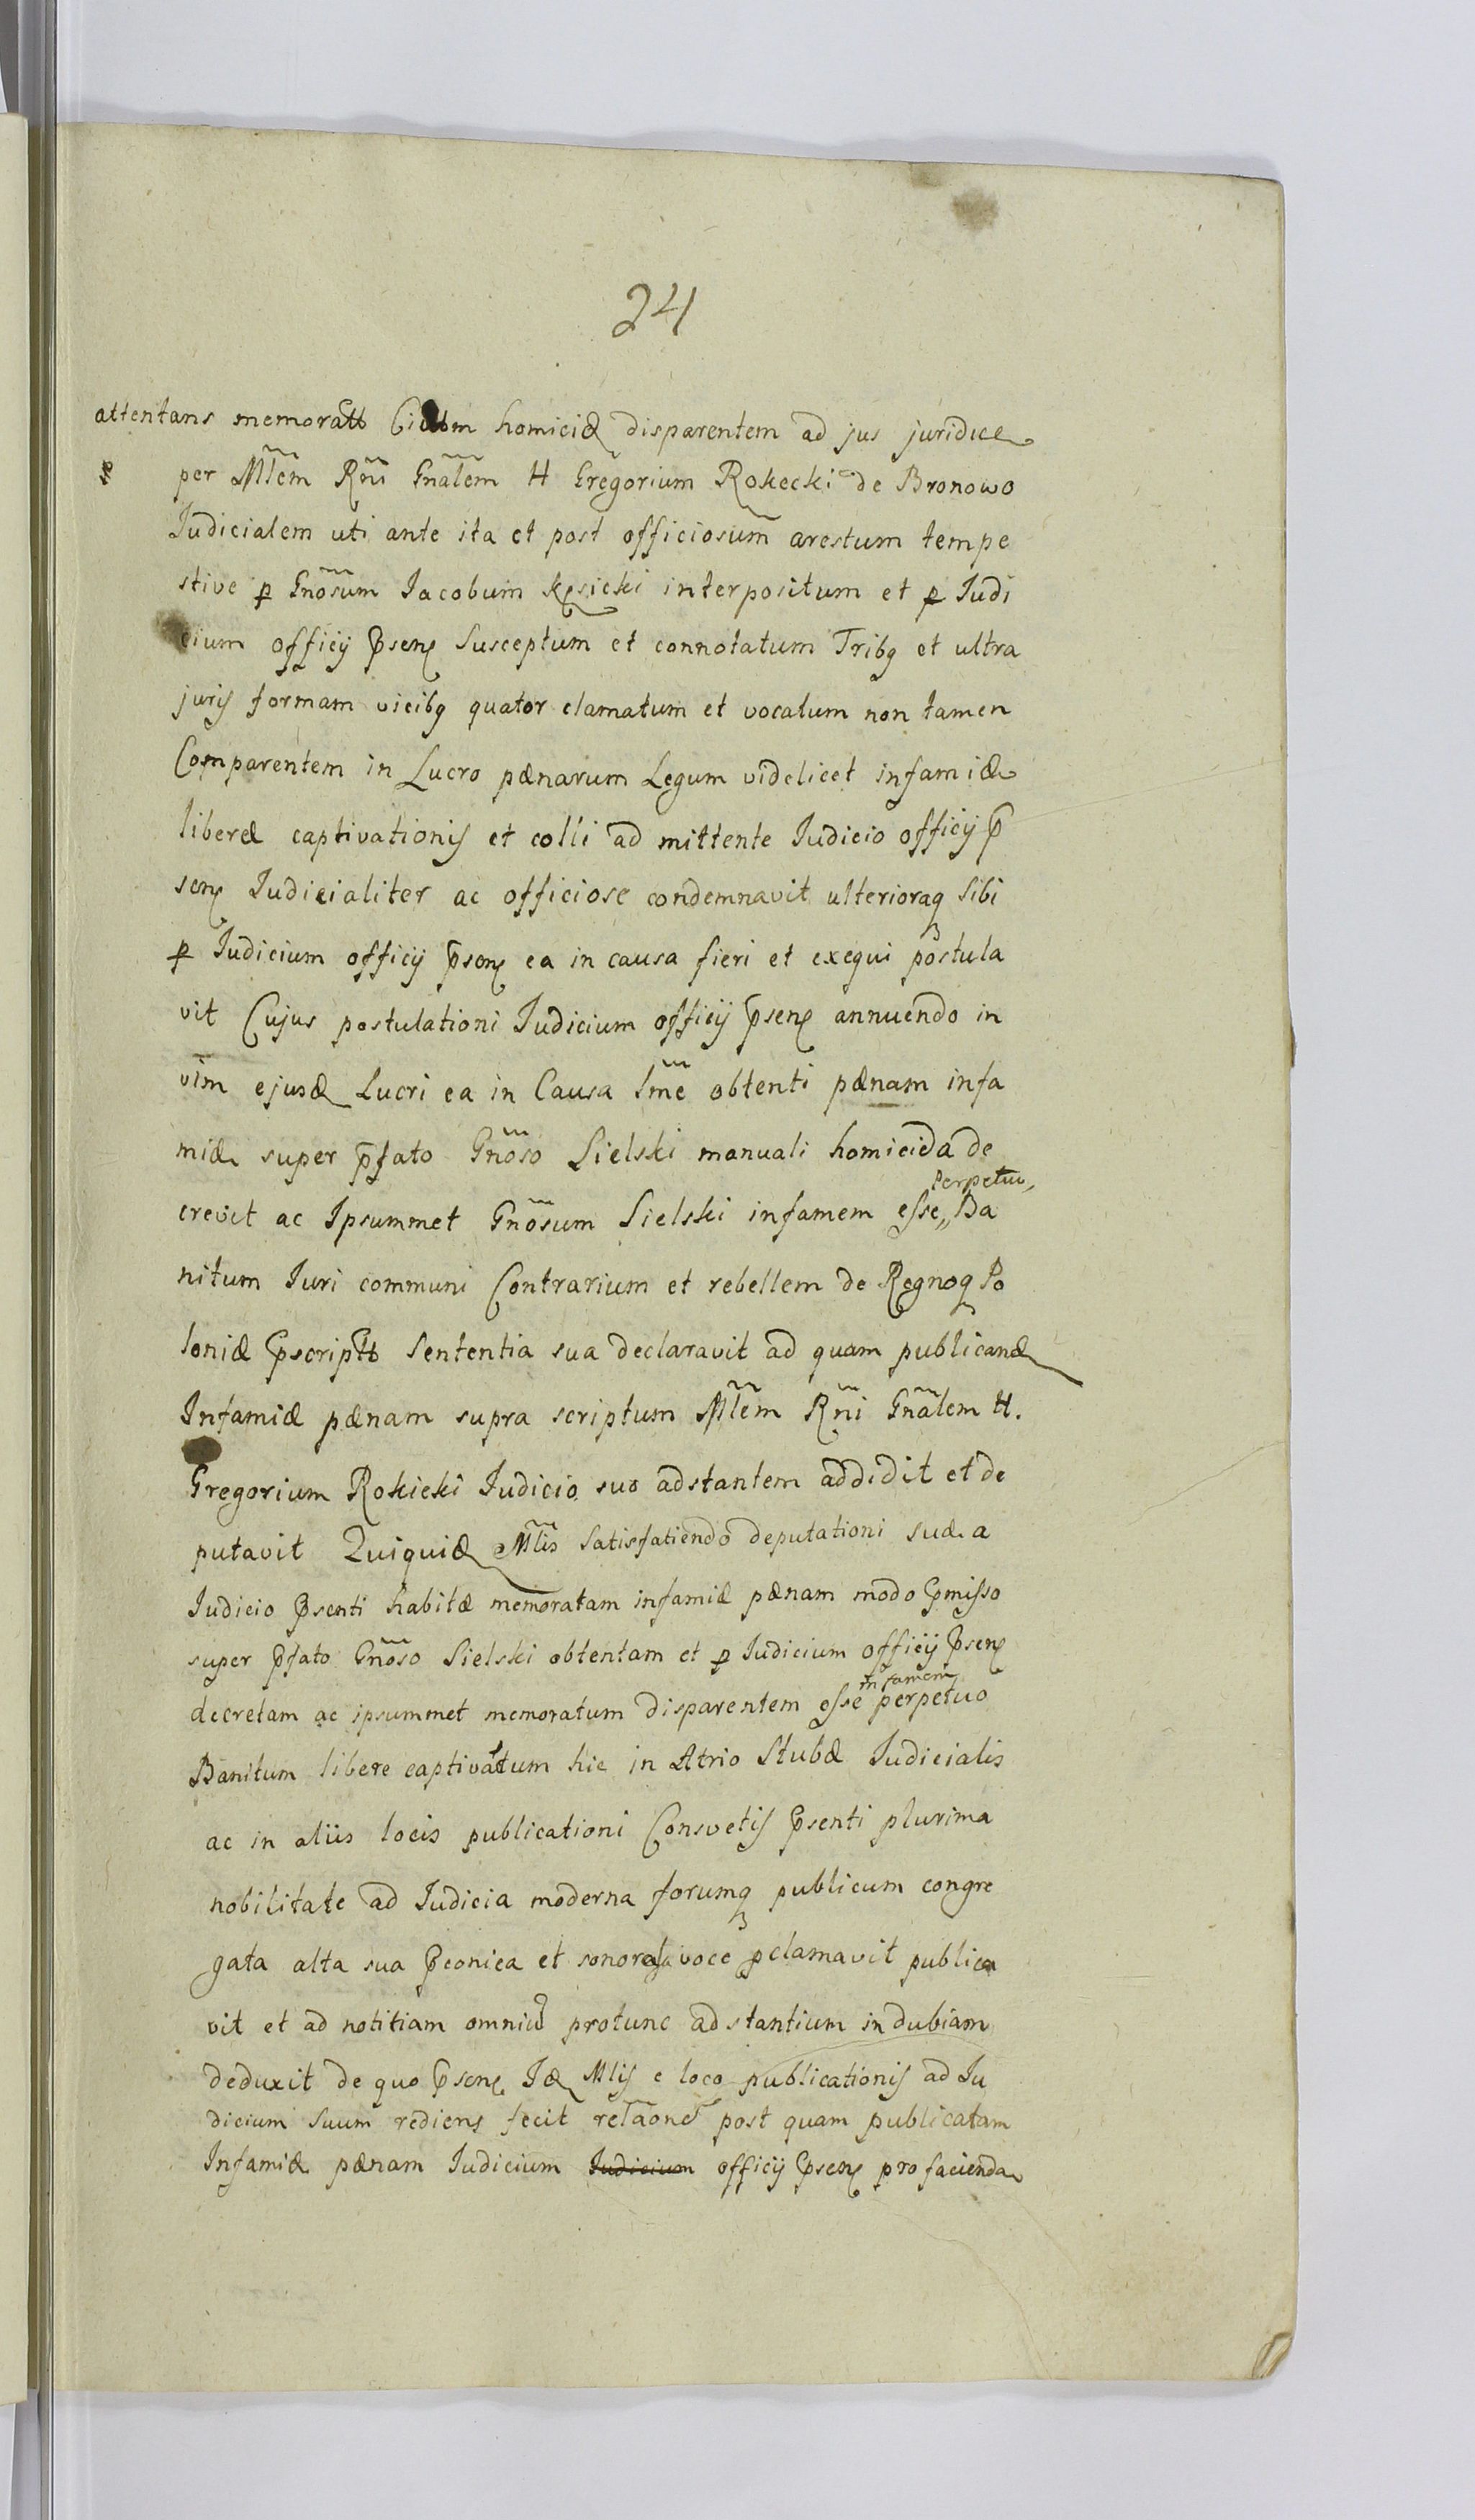 24
attentans memoratt homicid disparentem ad jus juridice
per Mlem Rni Gnalem H Gregorium Rokecki de Bronowo
Iudicialem uti ante ita et post officiosum arestum tempe
stive p Gnosum Iacobum Kęsicki interpositum et p Iudi
cium officij Psen Susceptum et connotatum Tribq et ultra
juris formam vicibq quator clamatum et vocatum non tamen
Comparentem in Lucro pænarum Legum videlicet infamiæ
liberæ captivationis et colli ad mittente Iudicio officij P
sen Iudicialiter ac officiose condemnavit ulterioraq Sibi
p Iudicium officij Psen ea in causa fieri et exequi postula
vit Cujus postulationi Iudicium officij Psen annuendo in
vim ejusd Lucri ea in Causa Sme obtenti pænam infa
miæ super Pfato Gnoso Sielski manuali homicida de
crevit ac Ipsummet Gnosum Sielski infamem esse,, perpetuo,, Ba
nitum Iuri communi Contrarium et rebellem de Regnoq Po
loniæ Pscriptt Sententia sua declaravit ad quam publicand
Infamiæ pænam supra scriptum Mlem Rni Gnalem H.
Gregorium Rokicki Iudicio suo adstantem addidit et de
putavit Quiquid Mlis Satisfatiendo deputationi suæ a
Iudicio Psenti habitæ memoratam infamiæ pænam modo Pmisso
super Pfato Gnoso Sielski obtentam et p Iudicium officij Psen
decretam ac ipsummet memoratum disparentem esse infamem perpetuo
Banitum libere captivatum hic in Atrio Stubæ Iudicialis
ac in aliis locis publicationi Consvetis Psenti plurima
nobilitate ad Iudicia moderna forumq publicum congre
gata alta sua Pconica et sonora voce pclamavit publica
vit et ad notitiam omniu protunc adstantium indubiam
deduxit de quo Psen Id Mlis e loco publicationis ad Iu
dicium Suum rediens fecit relaone post quam publicatam
Infamiæ pænam Iudicium Iudicium officij Psen pro facienda